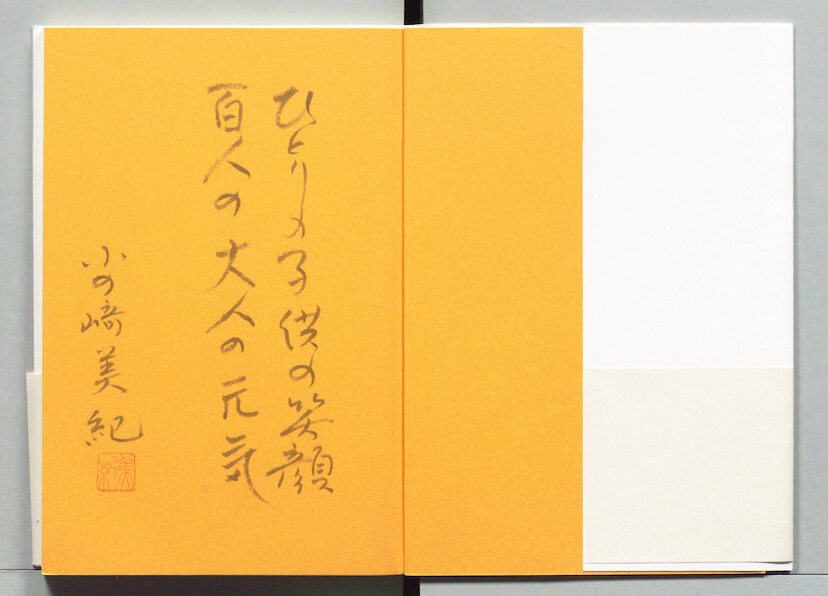 ひとりの子供の笑顔
百人の大人の元気
小の﨑美紀
美紀